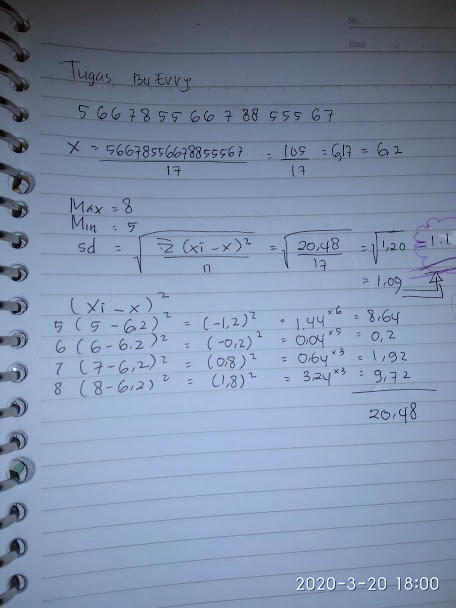 No.
Date
Tugas Bu Evvy
5 6 6 7 8 5 5 6 6 7 8 8 5 5 5 6 7
X = 56678556678855567 / 17 = 105 / 17 = 6,17 = 6,2
Max = 8
Min = 5
sd = √ Σ (xi - x)² / n = √ 20,48 / 17 = √1,20 = 1.1
= 1,09
(xi - x)²
5 (5 - 6,2)² = (-1,2)² = 1,44 ×6 = 8,64
6 (6 - 6,2)² = (-0,2)² = 0,04 ×5 = 0,2
7 (7 - 6,2)² = (0,8)² = 0,64 ×3 = 1,92
8 (8 - 6,2)² = (1,8)² = 3,24 ×3 = 9,72
20,48
2020-3-20 18:00